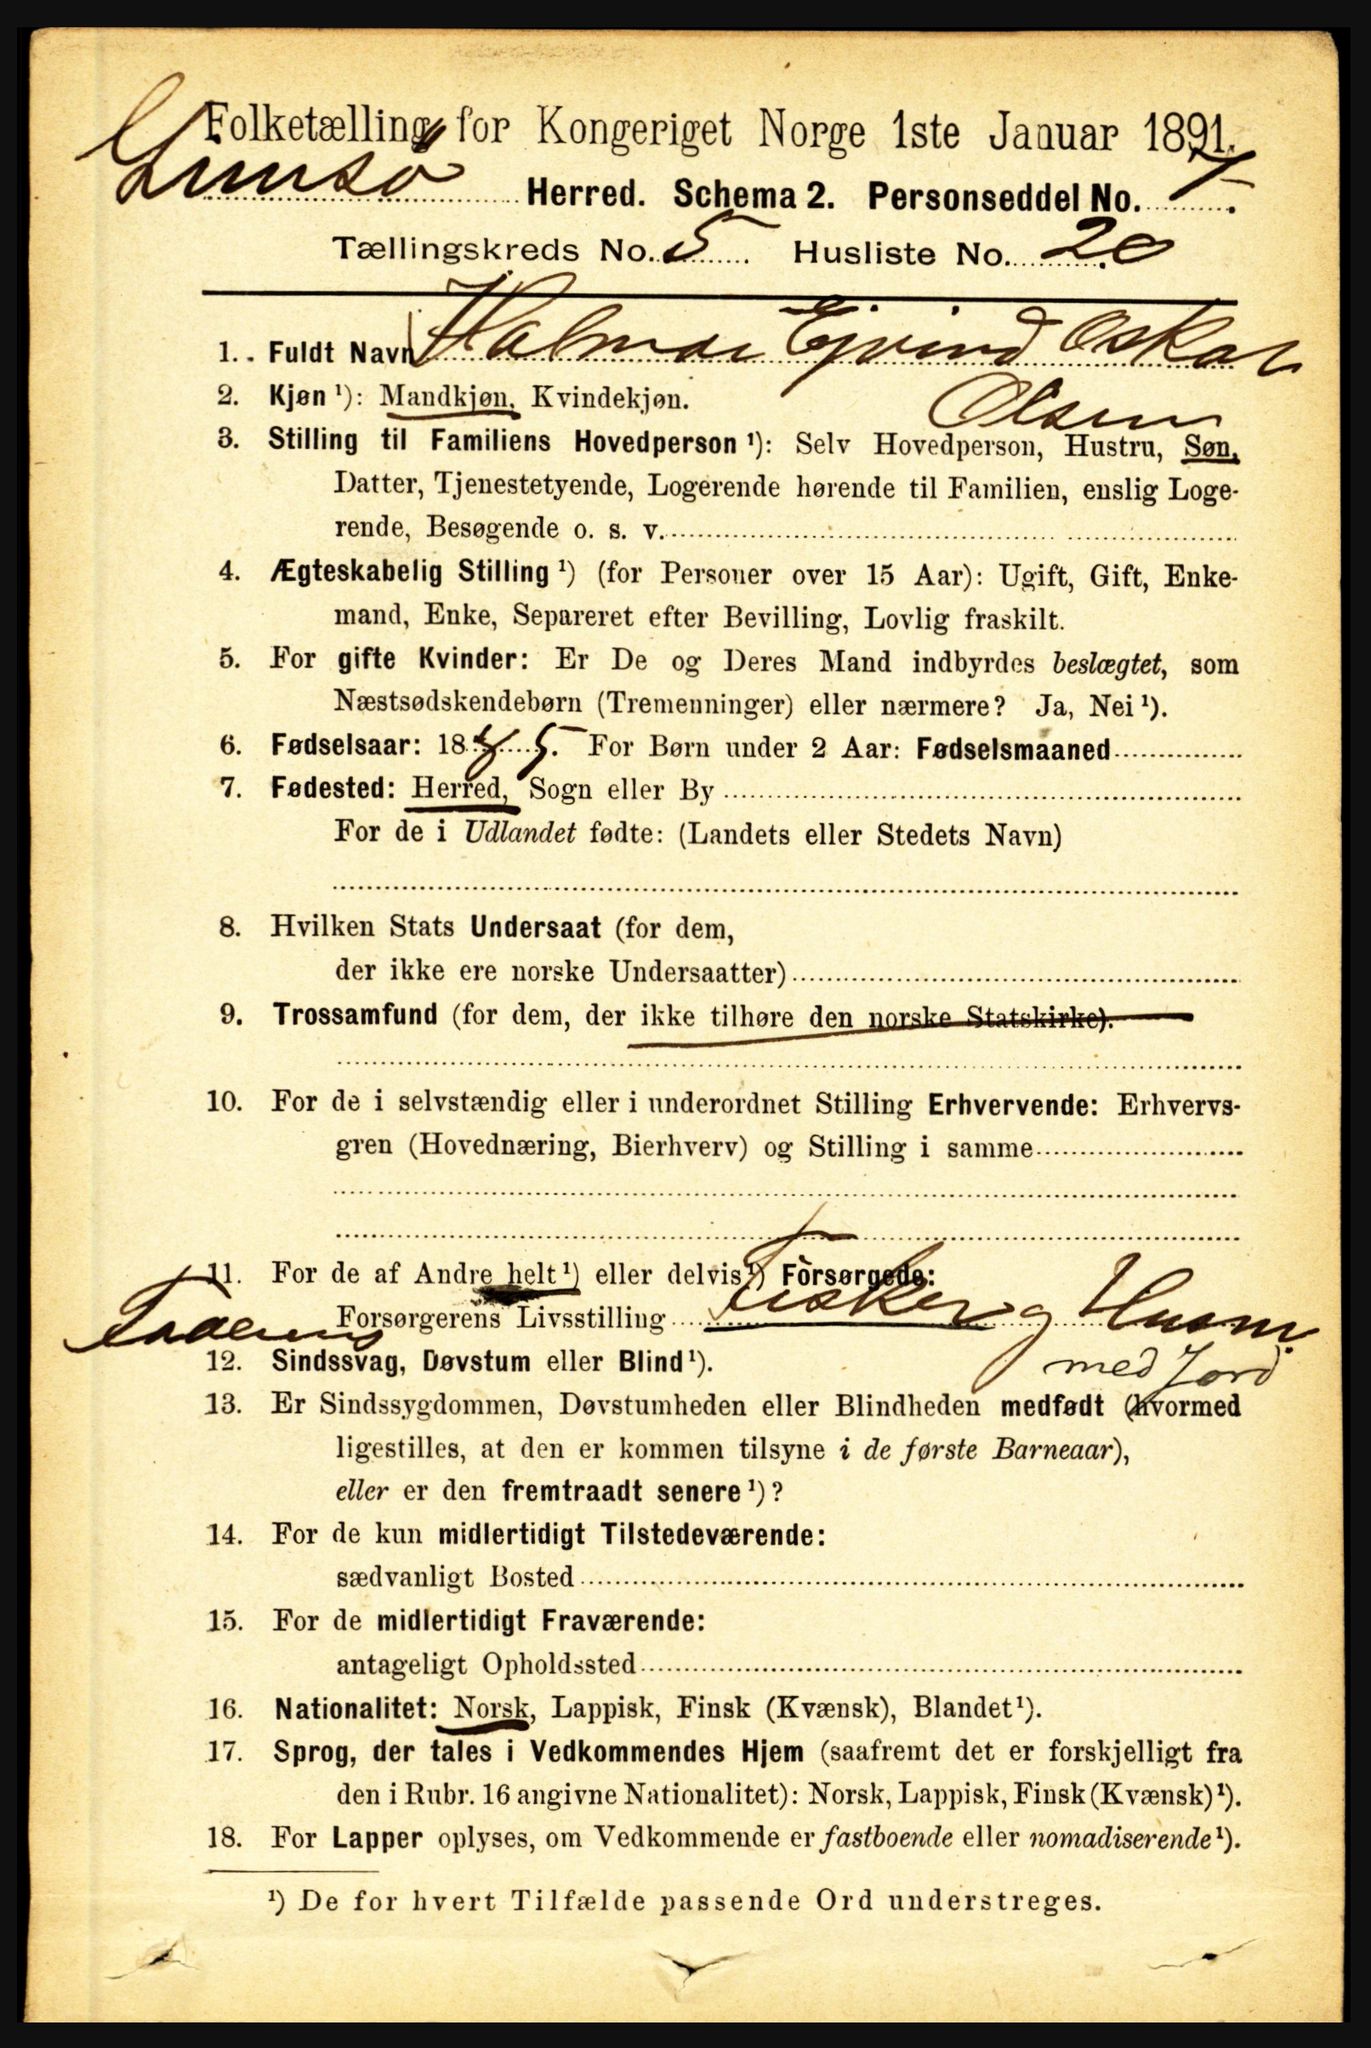 Folketælling for Kongeriget Norge 1ste Januar 1891.
Gimsø Herred. Schema 2. Personseddel No. 7.
Tællingskreds No. 5 Husliste No. 20
1. Fuldt Navn Halmar Ejvind Oskar
Olsen
2. Kjøn ¹): Mandkjøn, Kvindekjøn.
3. Stilling til Familiens Hovedperson ¹): Selv Hovedperson, Hustru, Søn,
Datter, Tjenestetyende, Logerende hørende til Familien, enslig Loge-
rende, Besøgende o. s. v.
4. Ægteskabelig Stilling ¹) (for Personer over 15 Aar): Ugift, Gift, Enke-
mand, Enke, Separeret efter Bevilling, Lovlig fraskilt.
5. For gifte Kvinder: Er De og Deres Mand indbyrdes beslægtet, som
Næstsødskendebørn (Tremenninger) eller nærmere? Ja, Nei ¹).
6. Fødselsaar: 1885. For Børn under 2 Aar: Fødselsmaaned
7. Fødested: Herred, Sogn eller By
For de i Udlandet fødte: (Landets eller Stedets Navn)
8. Hvilken Stats Undersaat (for dem,
der ikke ere norske Undersaatter)
9. Trossamfund (for dem, der ikke tilhøre den norske Statskirke).
10. For de i selvstændig eller i underordnet Stilling Erhvervende: Erhvervs-
gren (Hovednæring, Bierhverv) og Stilling i samme
11. For de af Andre helt ¹) eller delvis ¹) Forsørgede:
Faderens Forsørgerens Livsstilling Fisker og Husm.
med Jord
12. Sindssvag, Døvstum eller Blind ¹).
13. Er Sindssygdommen, Døvstumheden eller Blindheden medfødt (hvormed
ligestilles, at den er kommen tilsyne i de første Barneaar),
eller er den fremtraadt senere ¹)?
14. For de kun midlertidigt Tilstedeværende:
sædvanligt Bosted
15. For de midlertidigt Fraværende:
antageligt Opholdssted
16. Nationalitet: Norsk, Lappisk, Finsk (Kvænsk), Blandet ¹).
17. Sprog, der tales i Vedkommendes Hjem (saafremt det er forskjelligt fra
den i Rubr. 16 angivne Nationalitet): Norsk, Lappisk, Finsk (Kvænsk) ¹).
18. For Lapper oplyses, om Vedkommende er fastboende eller nomadiserende ¹).
¹) De for hvert Tilfælde passende Ord understreges.